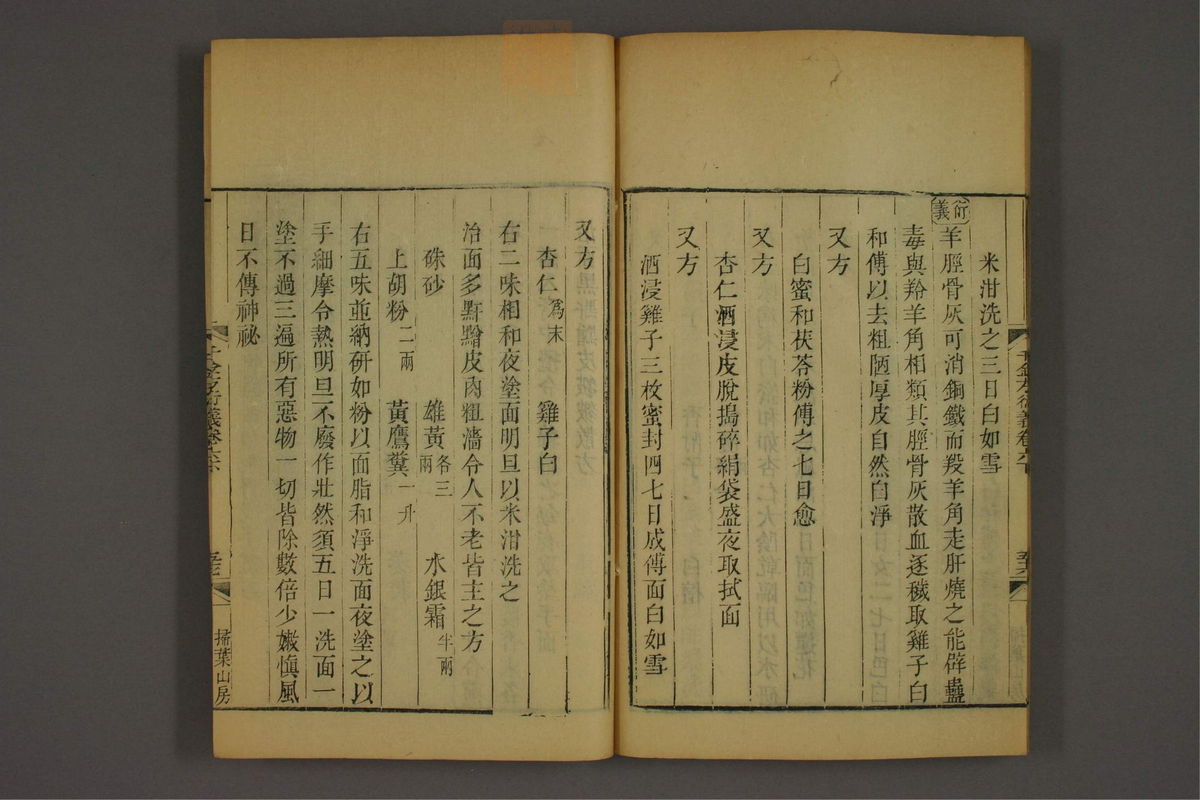 米泔洗之三日白如雪
衍義
羊脛骨灰可消銅鐵而羖羊角走肝燒之能辟蠱
毒與羚羊角相類其脛骨灰散血逐穢取雞子白
和傅以去粗陋厚皮自然白淨
又方
白蜜和茯苓粉傅之七日愈
又方
杏仁酒浸皮脫搗碎絹袋盛夜取拭面
又方
酒浸雞子三枚蜜封四七日成傅面白如雪
又方
杏仁爲末 雞子白
右二味相和夜塗面明旦以米泔洗之
治面多䵟䵳皮肉粗濇令人不老皆主之方
硃砂 雄黃各三兩 水銀霜半兩
上胡粉二兩 黃鷹糞一升
右五味並納研如粉以面脂和淨洗面夜塗之以
手細摩令熱明旦不廢作壯然須五日一洗面一
塗不過三遍所有惡物一切皆除數倍少嫩愼風
日不傳神祕
千金方衍義卷六下
掃葉山房